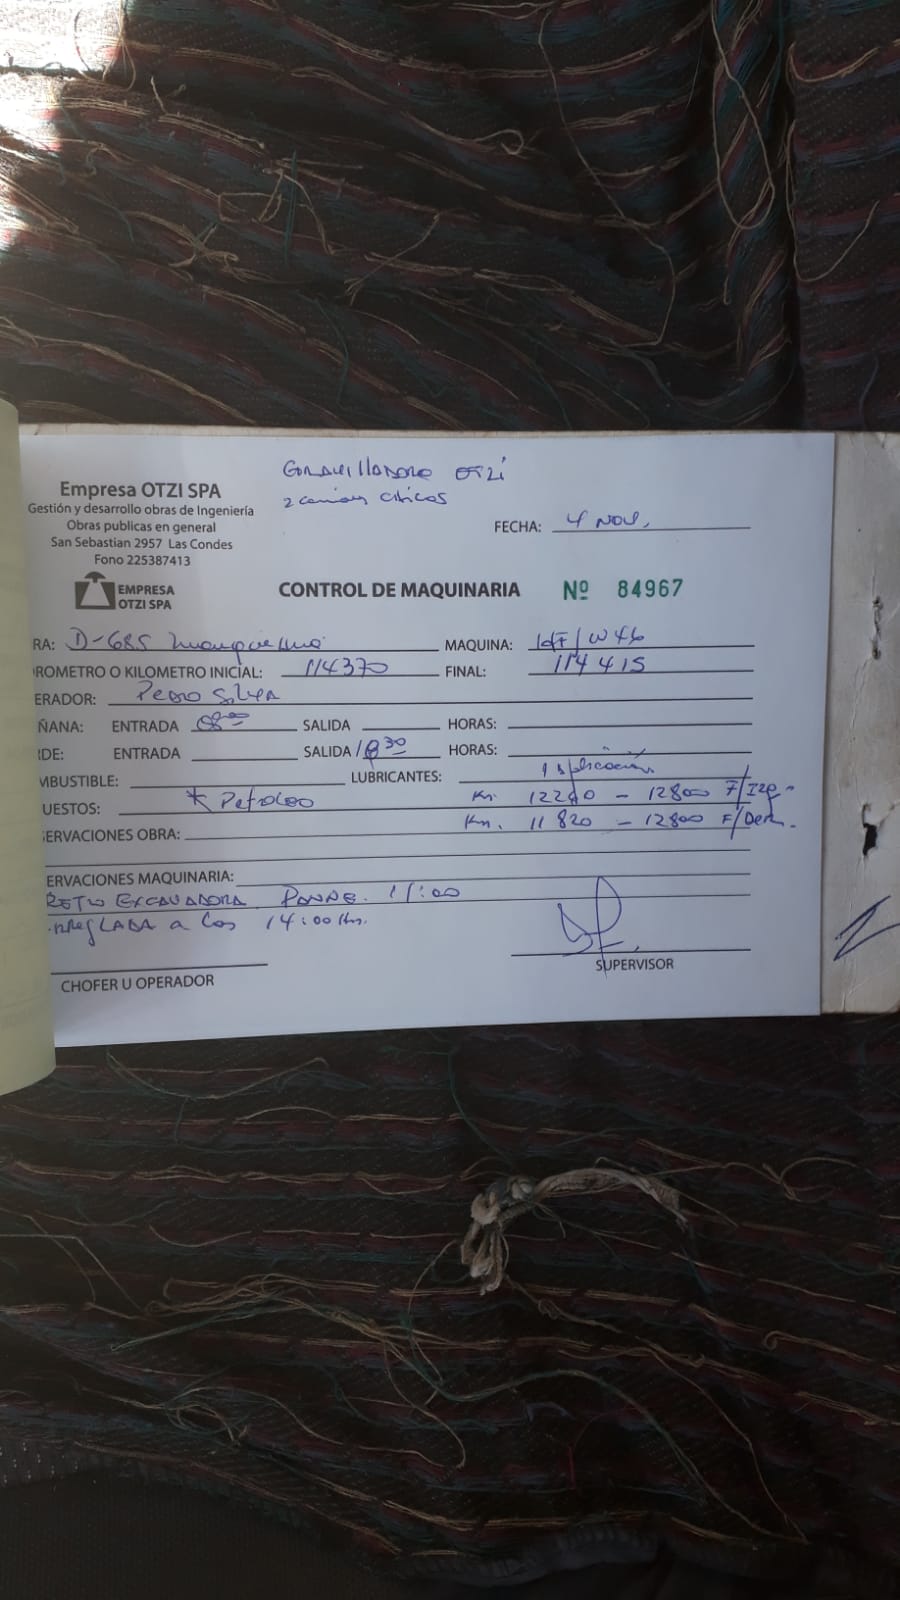 Gravilladora OTZI
2 camiones cubicos
Empresa OTZI SPA
Gestión y desarrollo obras de Ingeniería
Obras publicas en general
San Sebastian 2957 Las Condes
Fono 225387413
FECHA: 4 Nov.
EMPRESA
OTZI SPA
CONTROL DE MAQUINARIA Nº 84967
RA: D-685 MAQUINA:
OROMETRO O KILOMETRO INICIAL: 114370 FINAL: 114415
ERADOR: Pedro Silva
ÑANA: ENTRADA 08:00 SALIDA HORAS:
RDE: ENTRADA SALIDA 18:30 HORAS:
MBUSTIBLE: LUBRICANTES: 1 aplicación
UESTOS: * Petroleo Km. 12240 - 12800 F/Izq.
SERVACIONES OBRA: Km. 11820 - 12800 F/Der.
ERVACIONES MAQUINARIA:
RETRO EXCAVADORA PANNE. 11:00
ARREGLADA a las 14:00 Hrs.
CHOFER U OPERADOR
SUPERVISOR